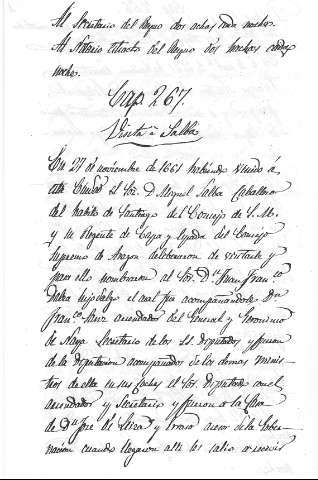 Al Secretario del Reyno dos achas cada noche.
Al Notario extracto del Reyno dos hachas cada
noche.
Cap 267.
Visita à Salba
En 27 de noviembre de 1661 habiendo venido á
esta Ciudad el Sr. D Miguel Salba Caballero
del habito de Santiago del Consejo de S. M.
y su Regente de Capa y Espada del Consejo
Supremo de Aragon deliberaron de visitarle y
para ello nombraron al Sor. Dn Juan Franco
hijodalgo el cual fue acompañandole Dn
Franco Sanz arrendador del General y Geronimo
de Naya Secretario de los SS. Diputados y fueron
de la Diputacion acompañados de los demas minis-
tros de ella en sus coches el Sor. Diputado con el
arrendador y Secretario y fueron a la Casa
de Dn José de acesor de la Gober-
nacion cuando llegaron alli les salio a recivir